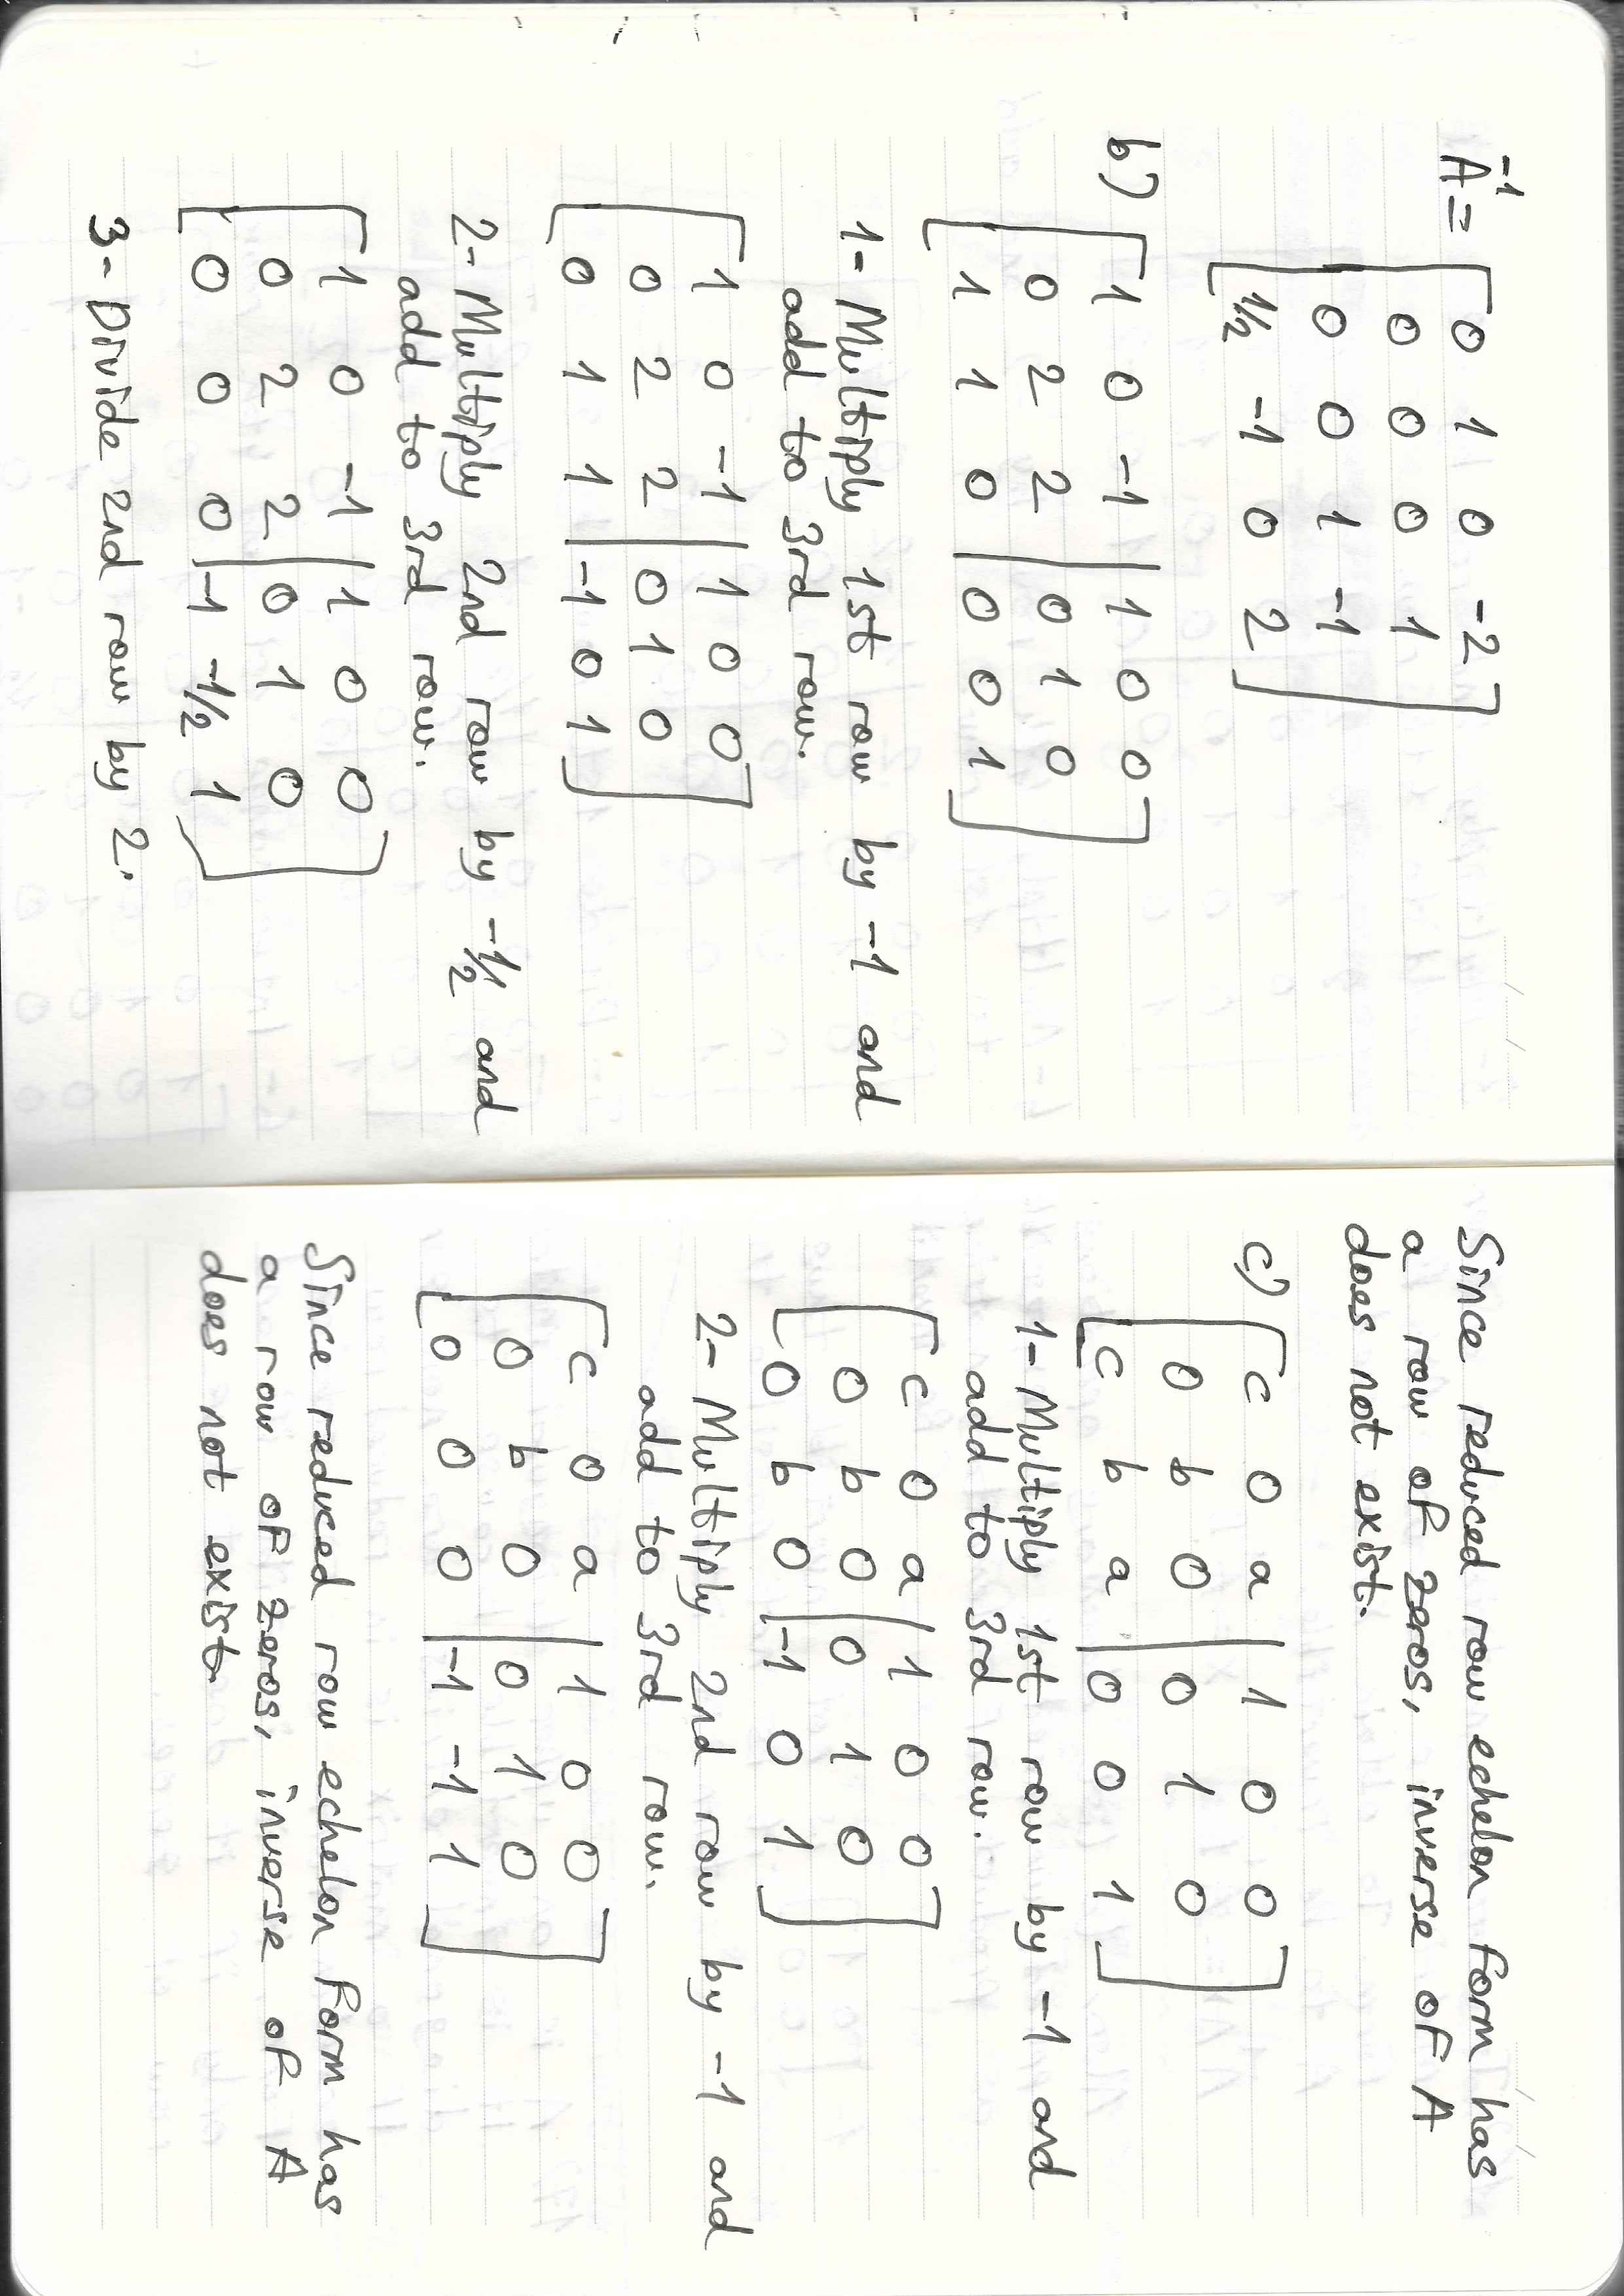 A⁻¹ = [ 0 1 0 -2
0 0 0 1
0 0 1 -1
1/2 -1 0 2 ]
b) [ 1 0 -1 | 1 0 0
0 2 2 | 0 1 0
1 1 0 | 0 0 1 ]
1- Multiply 1st row by -1 and
add to 3rd row.
[ 1 0 -1 | 1 0 0
0 2 2 | 0 1 0
0 1 1 | -1 0 1 ]
2- Multiply 2nd row by -1/2 and
add to 3rd row.
[ 1 0 -1 | 1 0 0
0 2 2 | 0 1 0
0 0 0 | -1 -1/2 1 ]
3- Divide 2nd row by 2.
Since reduced row echelon form has
a row of zeros, inverse of A
does not exist.
c) [ c 0 a | 1 0 0
0 b 0 | 0 1 0
c b a | 0 0 1 ]
1- Multiply 1st row by -1 and
add to 3rd row.
[ c 0 a | 1 0 0
0 b 0 | 0 1 0
0 b 0 | -1 0 1 ]
2- Multiply 2nd row by -1 and
add to 3rd row.
[ c 0 a | 1 0 0
0 b 0 | 0 1 0
0 0 0 | -1 -1 1 ]
Since reduced row echelon form has
a row of zeros, inverse of A
does not exist.